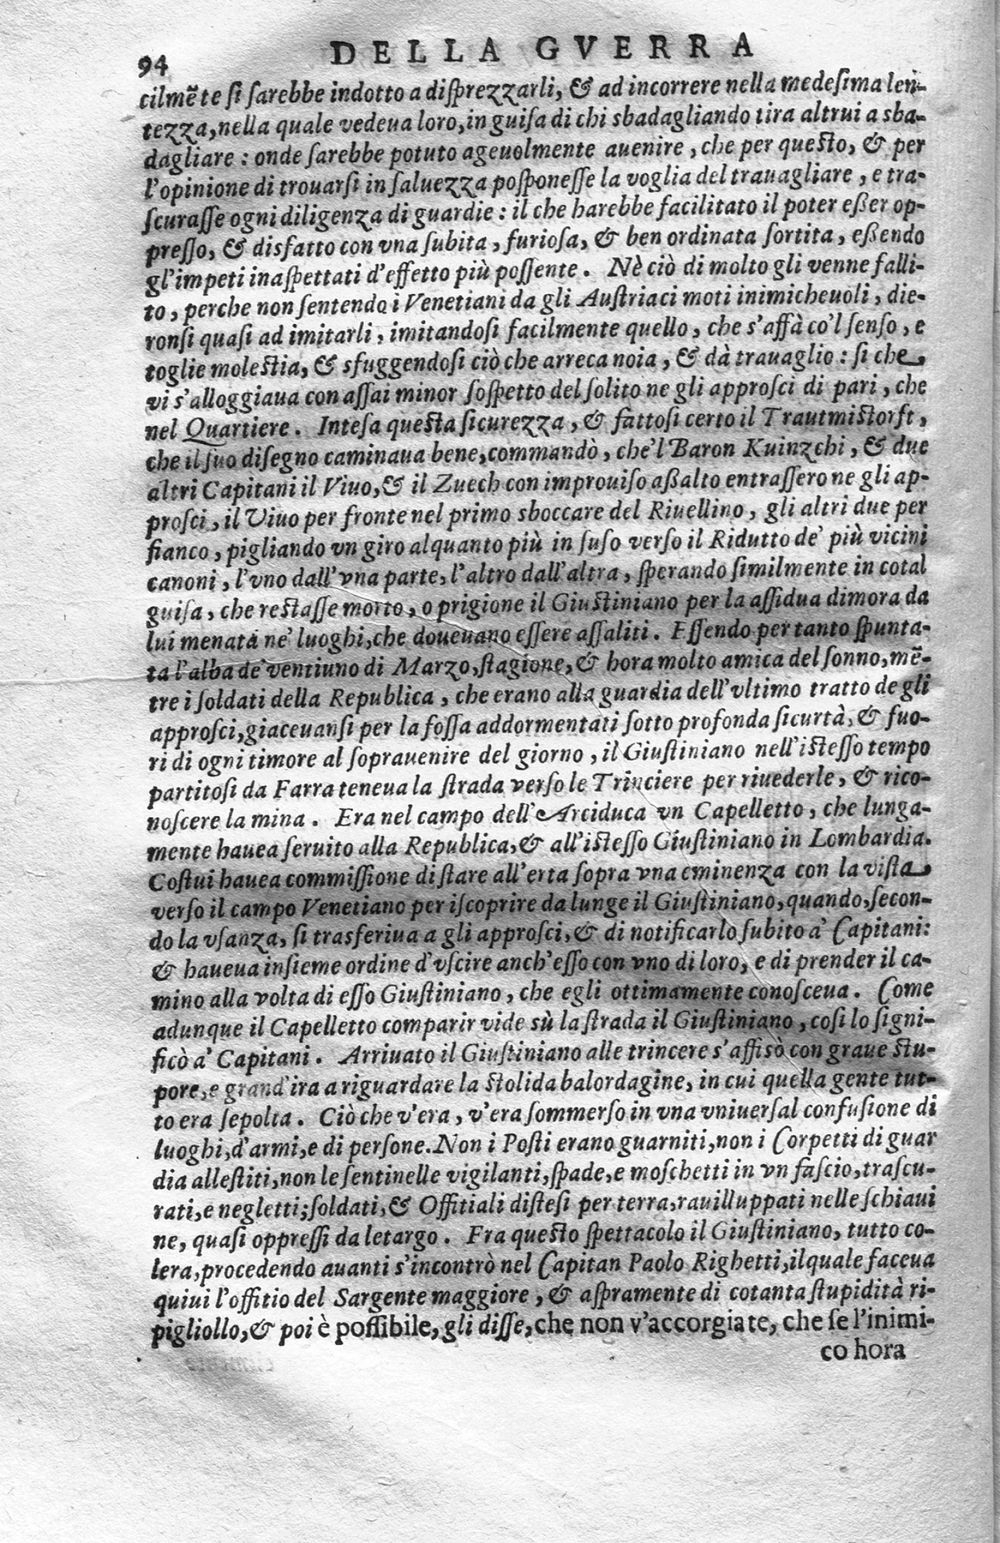 94 DELLA GVERRA
cilmẽte si sarebbe indotto a disprezzarli, & ad incorrere nella medesima len-
tezza, nella quale vedeua loro, in guisa di chi sbadagliando tira altrui a sba-
dagliare : onde sarebbe potuto ageuolmente auenire, che per questo, & per
l'opinione di trouarsi in saluezza posponesse la voglia del trauagliare, e tra-
scurasse ogni diligenza di guardie : il che harebbe facilitato il poter esser op-
presso, & disfatto con vna subita, furiosa, & ben ordinata sortita, essendo
gl'impeti inaspettati d'effetto più possente. Nè ciò di molto gli venne falli-
to, perche non sentendo i Venetiani da gli Austriaci moti inimicheuoli, die-
ronsi quasi ad imitarli, imitandosi facilmente quello, che s'affà co'l senso, e
toglie molestia, & sfuggendosi ciò che arreca noia, & dà trauaglio : si che
vi s'alloggiaua con assai minor sospetto del solito ne gli approsci di pari, che
nel Quartiere. Intesa questa sicurezza, & fattosi certo il Trautmistorft,
che il suo disegno caminaua bene, commandò, che'l Baron Kuinzchi, & due
altri Capitani il Viuo, & il Zuech con improuiso assalto entrassero ne gli ap-
prosci, il Viuo per fronte nel primo sboccare del Riuellino, gli altri due per
fianco, pigliando vn giro alquanto più in suso verso il Ridutto de' più vicini
canoni, l'vno dall'vna parte, l'altro dall'altra, sperando similmente in cotal
guisa, che restasse morto, o prigione il Giustiniano per la assidua dimora da
lui menata ne' luoghi, che doueuano essere assaliti. Essendo per tanto spunta-
ta l'alba de' ventiuno di Marzo, stagione, & hora molto amica del sonno, mẽ-
tre i soldati della Republica, che erano alla guardia dell'vltimo tratto de gli
approsci, giaceuansi per la fossa addormentati sotto profonda sicurtà, & fuo-
ri di ogni timore al sopravenire del giorno, il Giustiniano nell'istesso tempo
partitosi da Farra teneua la strada verso le Trinciere per riuederle, & rico-
noscere la mina. Era nel campo dell'Arciduca vn Capelletto, che lunga-
mente hauea seruito alla Republica, & all'istesso Giustiniano in Lombardia.
Costui hauea commissione di stare all'erta sopra vna eminenza con la vista
verso il campo Venetiano per iscoprire da lunge il Giustiniano, quando, secon-
do la vsanza, si trasferiua a gli approsci, & di notificarlo subito a' Capitani:
& haueua insieme ordine d'vscire anch'esso con vno di loro, e di prender il ca-
mino alla volta di esso Giustiniano, che egli ottimamente conosceua. Come
adunque il Capelletto comparir vide sù la strada il Giustiniano, così lo signi-
ficò a' Capitani. Arriuato il Giustiniano alle trincere s'affisò con graue stu-
pore, e grand'ira a riguardare la stolida balordagine, in cui quella gente tut-
to era sepolta. Ciò che v'era, v'era sommerso in vna vniuersal confusione di
luoghi, d'armi, e di persone. Non i Posti erano guarniti, non i Corpetti di guar
dia allestiti, non le sentinelle vigilanti, spade, e moschetti in vn fascio, trascu-
rati, e negletti; soldati, & Offitiali distesi per terra, rauiluppati nelle schiaui
ne, quasi oppressi da letargo. Fra questo spettacolo il Giustiniano, tutto co-
lera, procedendo auanti s'incontrò nel Capitan Paolo Righetti, il quale faceua
quiui l'offitio del Sargente maggiore, & aspramente di cotanta stupidità ri-
pigliollo, & poi è possibile, gli disse, che non v'accorgiate, che se l'inimi-
co hora